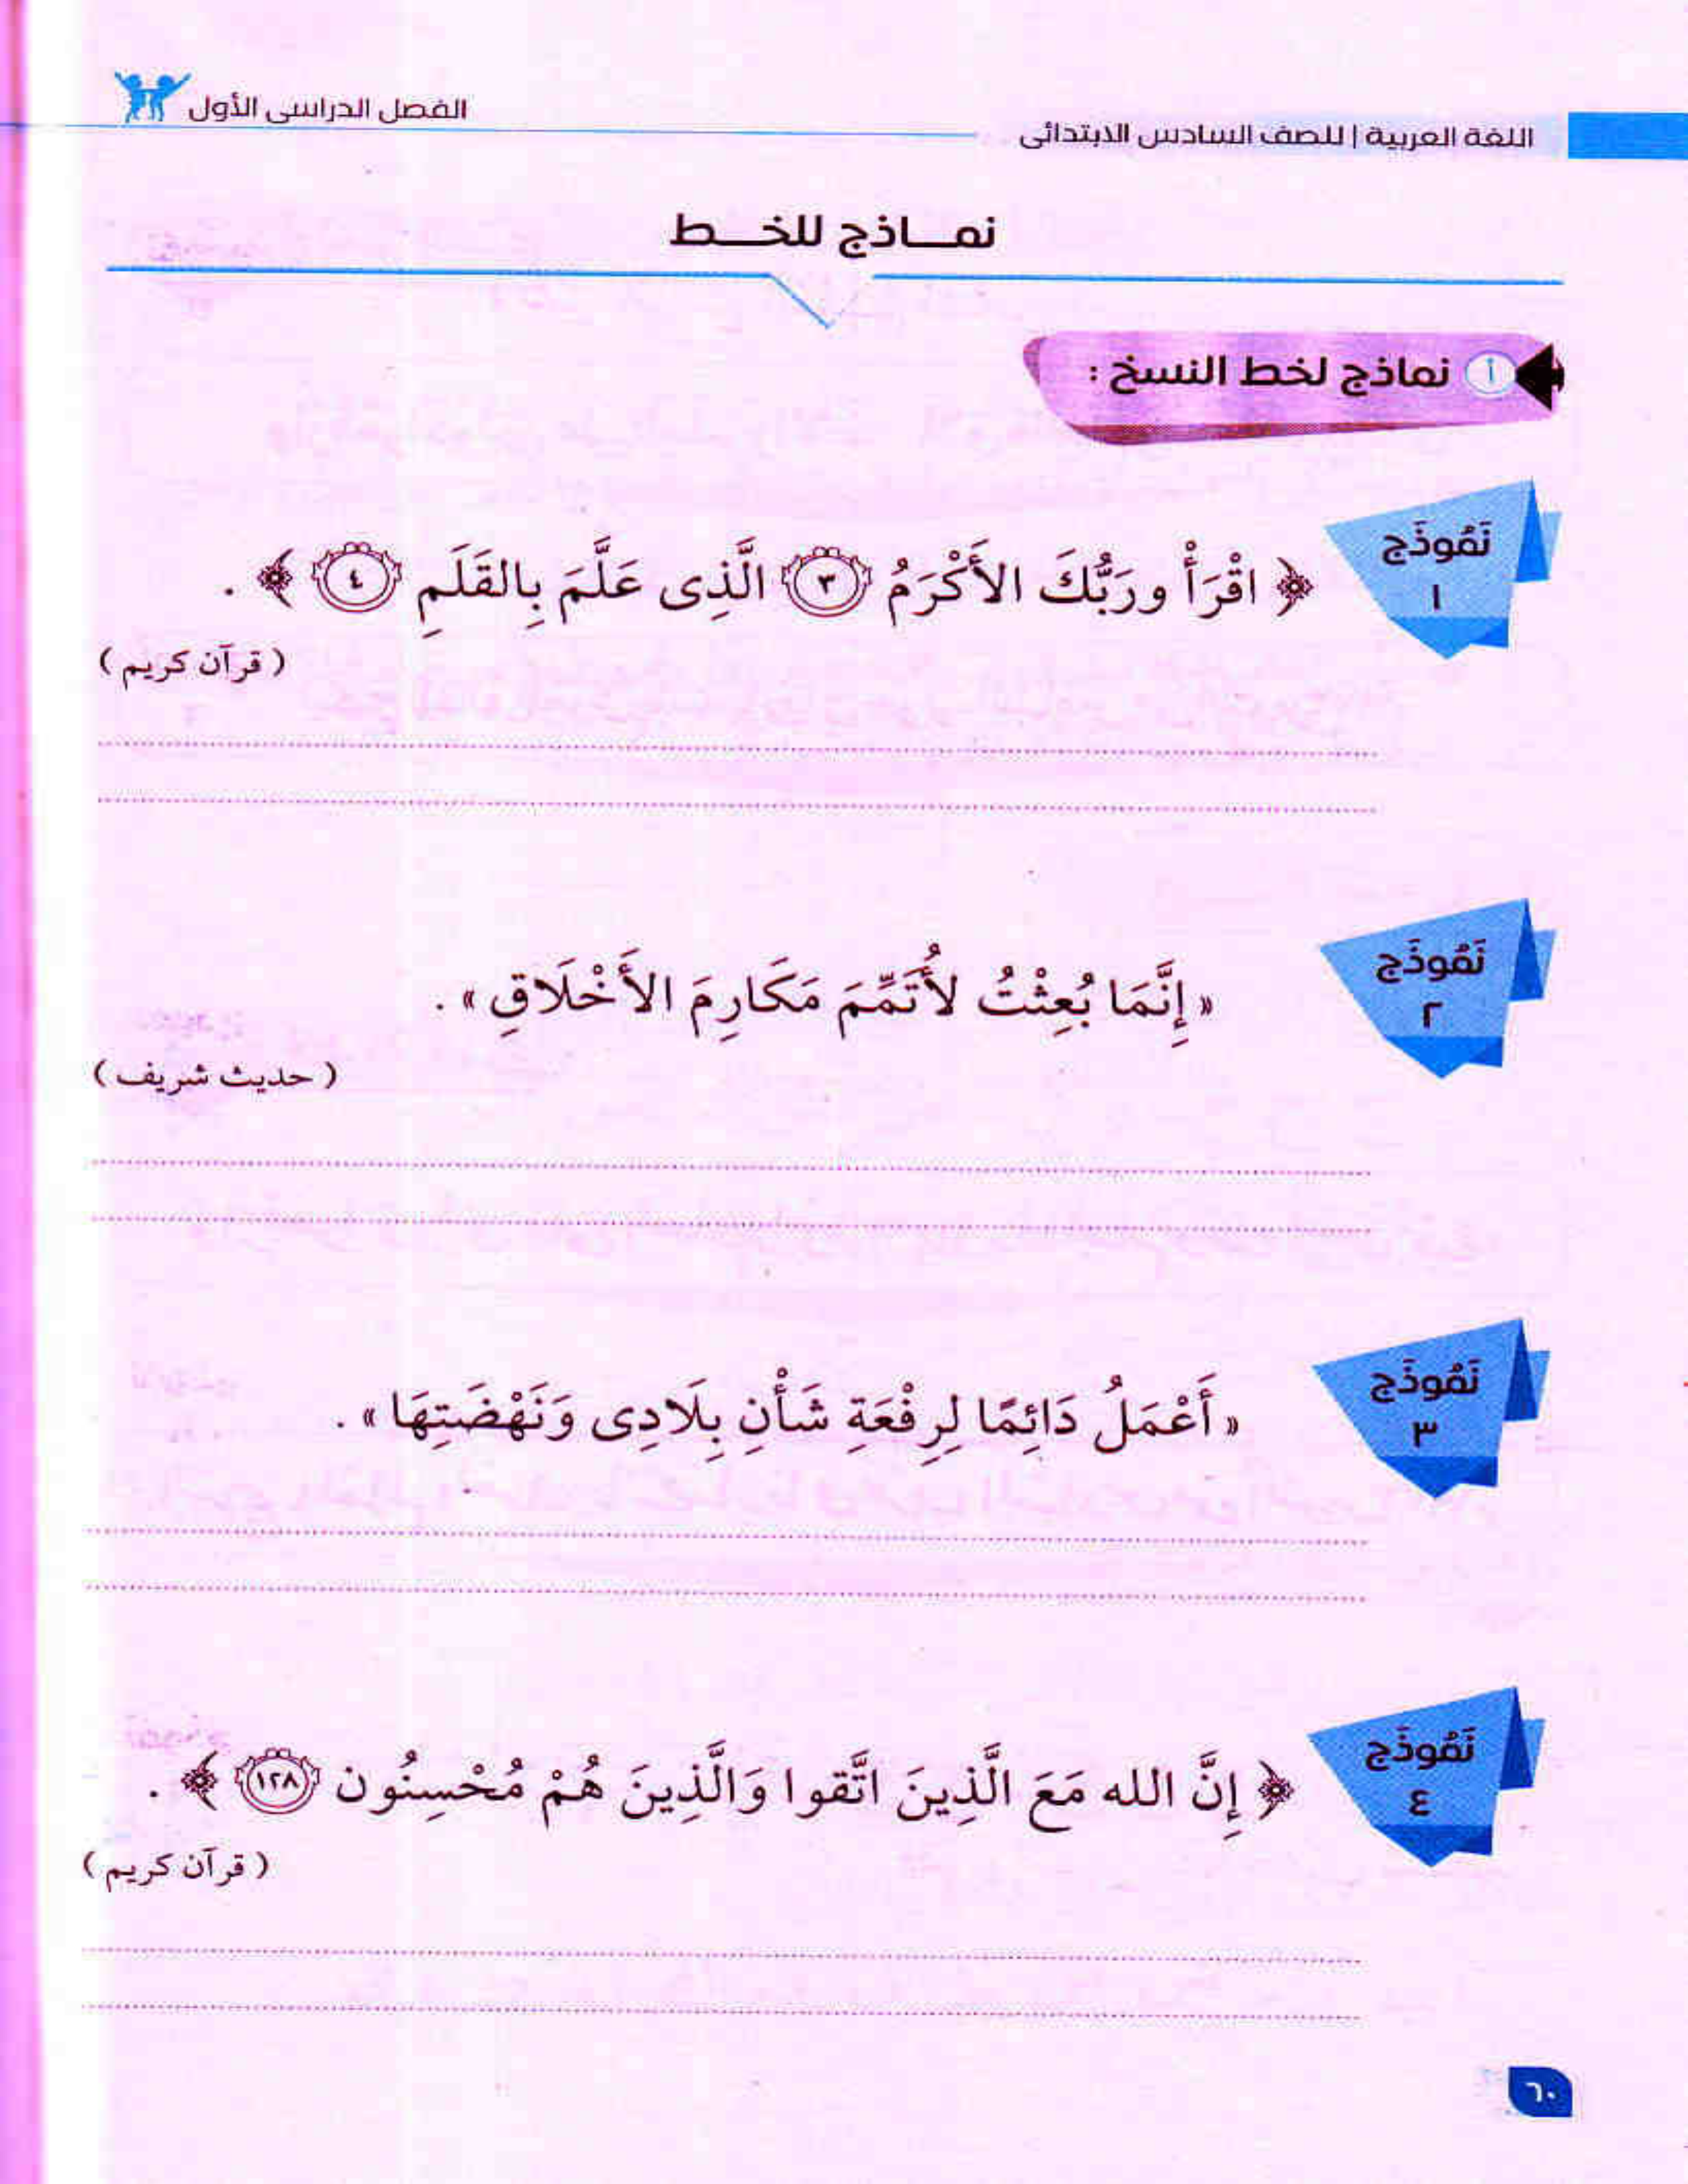 اللغة العربية | للصف السادس الابتدائى
الفصل الدراسى الأول
نمـــاذج للخـــط
أ نماذج لخط النسخ :
نَمُوذَج
١
﴿ اقْرَأْ ورَبُّكَ الأَكْرَمُ ٣ الَّذِى عَلَّمَ بِالقَلَمِ ٤ ﴾ .
( قرآن كريم )
نَمُوذَج
٢
« إِنَّمَا بُعِثْتُ لأُتَمِّمَ مَكَارِمَ الأَخْلَاقِ » .
( حديث شريف )
نَمُوذَج
٣
« أَعْمَلُ دَائِمًا لِرِفْعَةِ شَأْنِ بِلَادِى وَنَهْضَتِهَا » .
نَمُوذَج
٤
﴿ إِنَّ الله مَعَ الَّذِينَ اتَّقوا وَالَّذِينَ هُمْ مُحْسِنُون ١٢٨ ﴾ .
( قرآن كريم )
٦٠